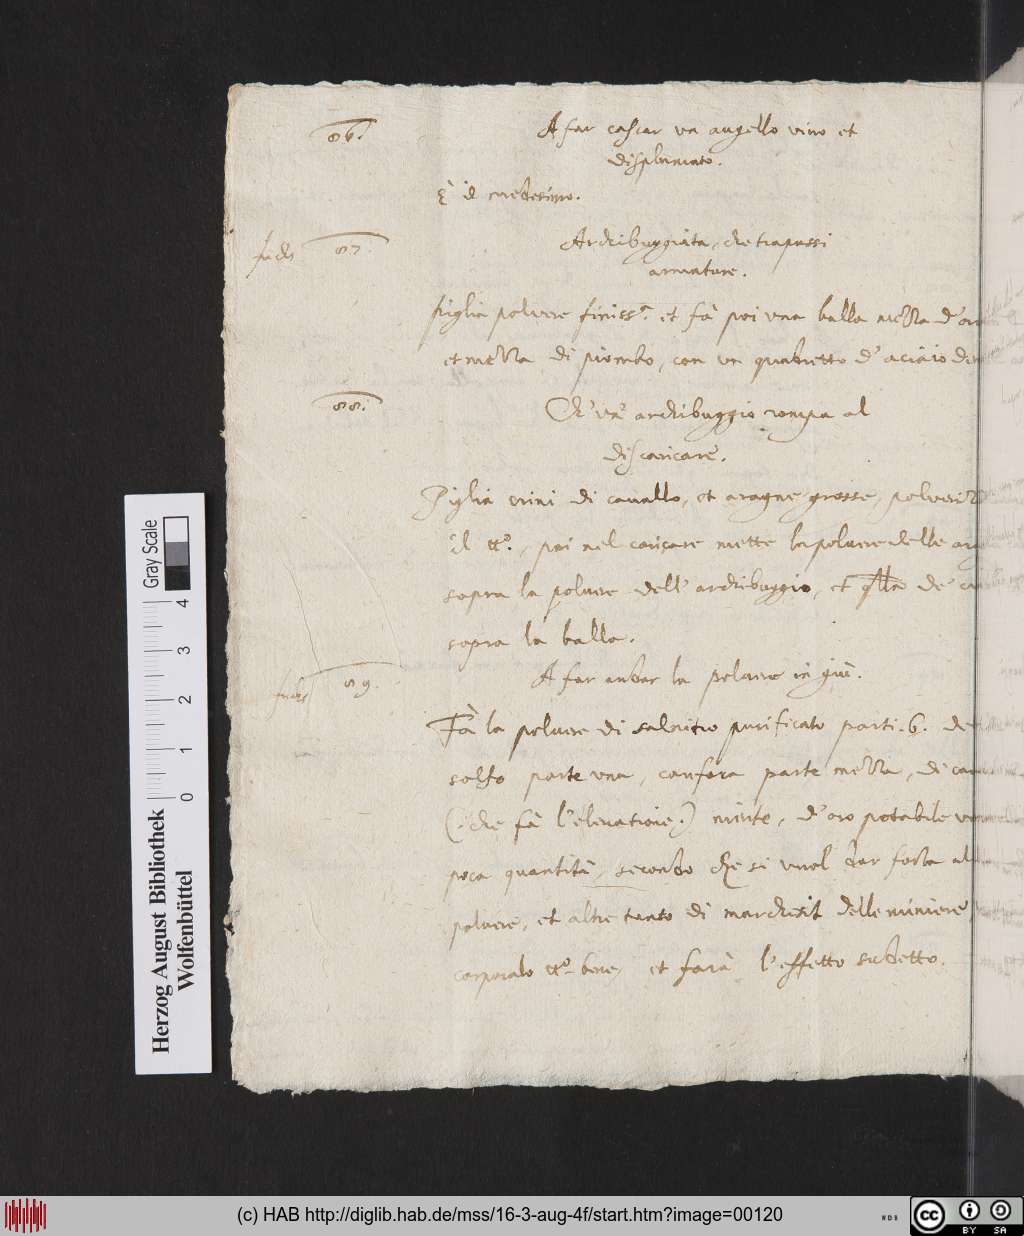 86.
A far cascar un augello vivo et
displumato.
È il medesimo.
87.
Archibuggiata, che trapassi
armature.
Piglia polvere finiss.ª et fà poi una balla mezza d'
et mezza di piombo, con un quadretto d'aciaio
88.
Ch' un' archibuggio rompa al
discaricare.
Piglia crini di cavallo, et aragne grosse,
il tt.º, poi nel caricare mette la polvere delle
sopra la polvere dell' archibuggio, et qlla de
sopra la balla.
89.
A far andar la polvere in giù.
Fà la polvere di salnitro purificato parti .6. de
solfo parte una, canfora parte mezza, di
(che fà l'elevatione) niente, d'oro potabile
poca quantità, secondo che si vuol dar forza al
polvere, et altre tanto di marchesit delle miniere
incorporalo tt.º bene, et farà l'effetto sudetto.
Gray Scale
0 1 2 3 4
Herzog August Bibliothek
Wolfenbüttel
(c) HAB http://diglib.hab.de/mss/16-3-aug-4f/start.htm?image=00120
WDB
cc
BY SA